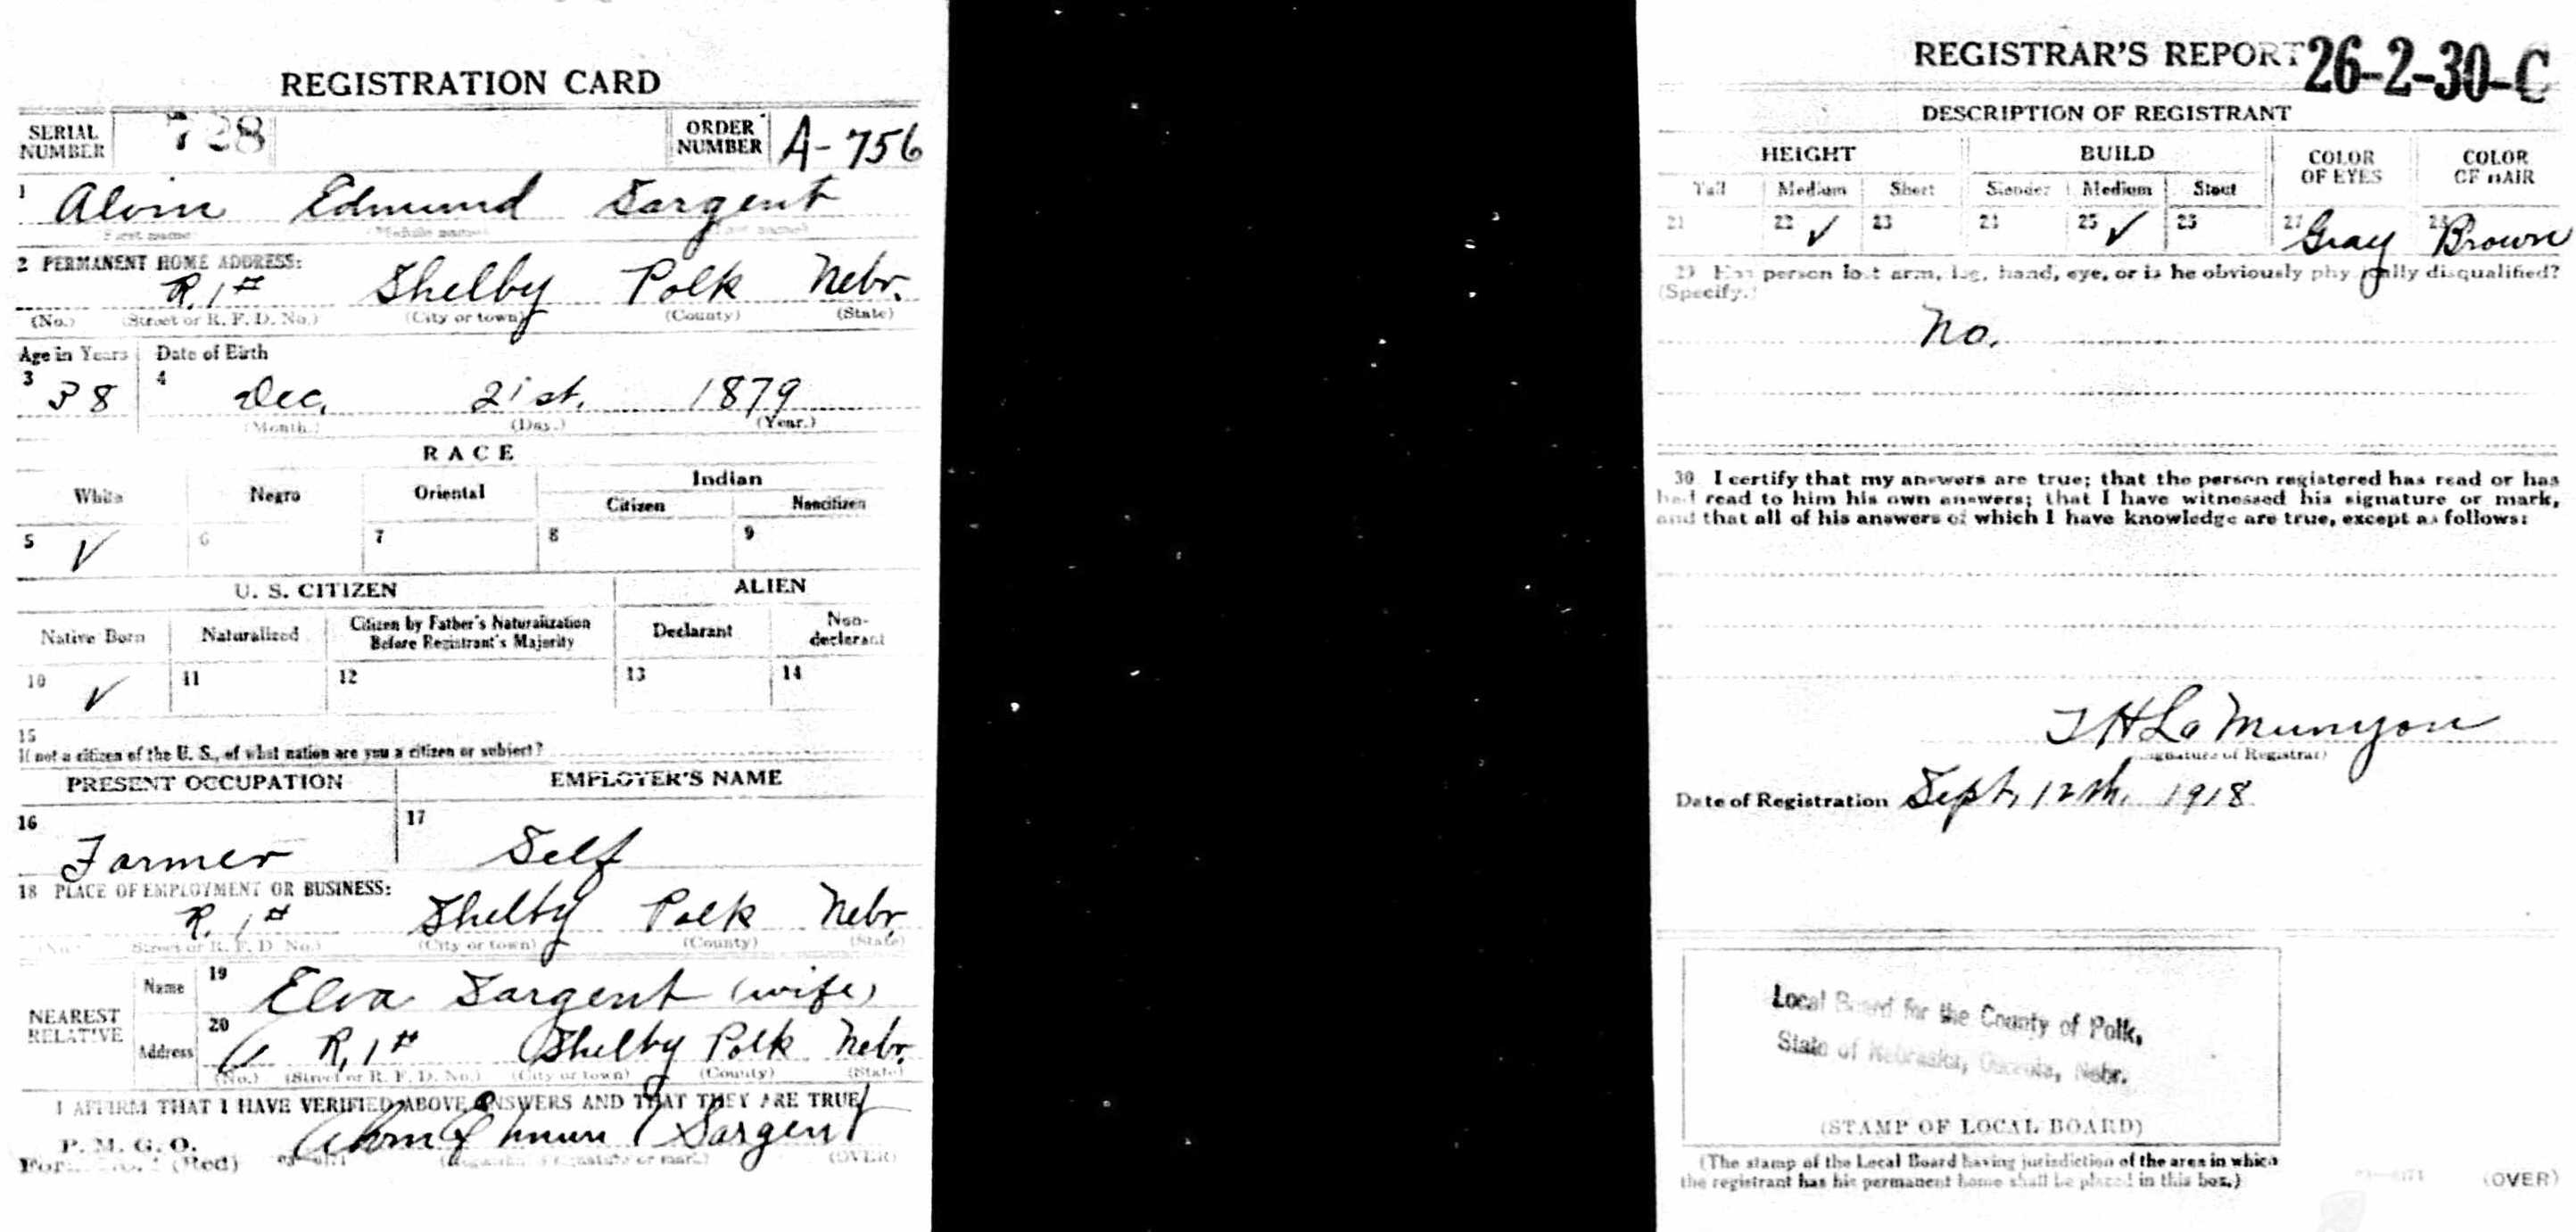 REGISTRATION CARD
SERIAL NUMBER 728 ORDER NUMBER A-756
1 Alvin Edmund Sargent
(First name) (Middle name) (Last name)
2 PERMANENT HOME ADDRESS:
R. 1# Shelby Polk Nebr.
(No.) (Street or R. F. D. No.) (City or town) (County) (State)
Age in Years Date of Birth
3 38 4 Dec. 21st. 1879
(Month.) (Day.) (Year.)
RACE
White Negro Oriental Indian
Citizen Noncitizen
5 ✓ 6 7 8 9
U. S. CITIZEN ALIEN
Native Born Naturalized Citizen by Father's Naturalization Before Registrant's Majority Declarant Non-declarant
10 ✓ 11 12 13 14
15
If not a citizen of the U. S., of what nation are you a citizen or subject?
PRESENT OCCUPATION EMPLOYER'S NAME
16 Farmer 17 Self
18 PLACE OF EMPLOYMENT OR BUSINESS:
R. 1# Shelby Polk Nebr.
(No.) (Street or R. F. D. No.) (City or town) (County) (State)
NEAREST RELATIVE
Name 19 Elva Sargent (wife)
Address 20 R. 1# Shelby Polk Nebr.
(No.) (Street or R. F. D. No.) (City or town) (County) (State)
I AFFIRM THAT I HAVE VERIFIED ABOVE ANSWERS AND THAT THEY ARE TRUE
P. M. G. O. Alvin Edmund Sargent
(Red) (Registrant's signature or mark) (OVER)
REGISTRAR'S REPORT 26-2-30-C
DESCRIPTION OF REGISTRANT
HEIGHT BUILD COLOR OF EYES COLOR OF HAIR
Tall Medium Short Slender Medium Stout
21 22 ✓ 23 24 25 ✓ 26 27 Gray 28 Brown
29 Has person lost arm, leg, hand, eye, or is he obviously physically disqualified?
(Specify.)
No.
30 I certify that my answers are true; that the person registered has read or has
had read to him his own answers; that I have witnessed his signature or mark,
and that all of his answers of which I have knowledge are true, except as follows:
T H La Munyon
(Signature of Registrar)
Date of Registration Sept. 12th. 1918
Local Board for the County of Polk,
State of Nebraska, Osceola, Nebr.
(STAMP OF LOCAL BOARD)
(The stamp of the Local Board having jurisdiction of the area in which
the registrant has his permanent home shall be placed in this box.)
(OVER)